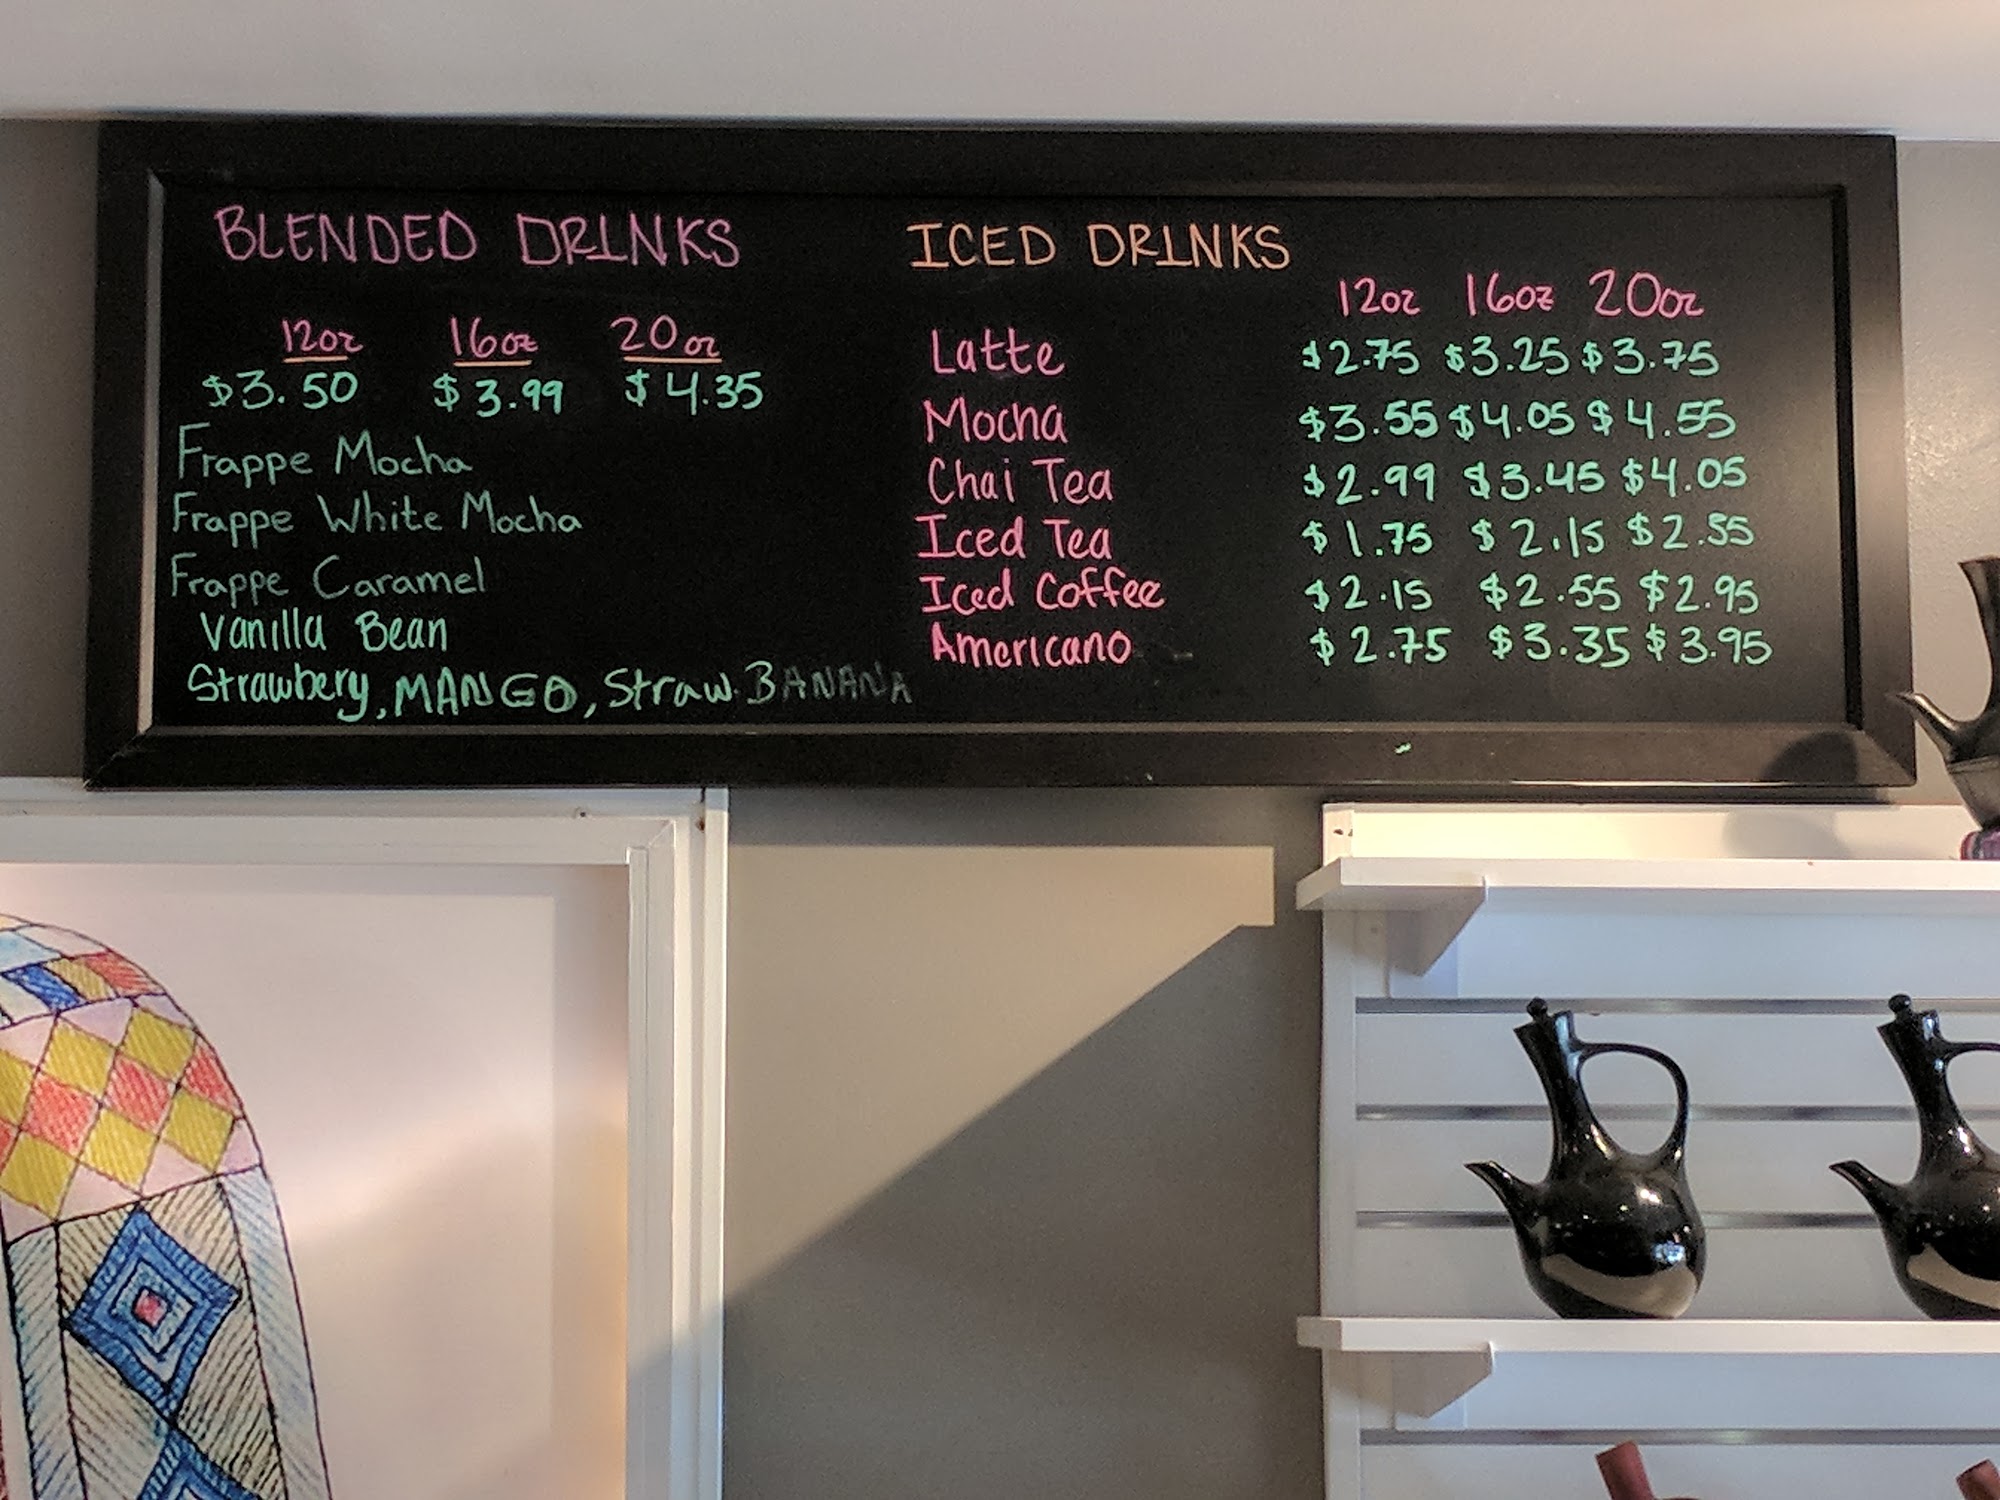 BLENDED DRINKS
12oz 16oz 20oz
$3.50 $3.99 $4.35
Frappe Mocha
Frappe White Mocha
Frappe Caramel
Vanilla Bean
Strawbery, MANGO, Straw. BANANA
ICED DRINKS
12oz 16oz 20oz
Latte $2.75 $3.25 $3.75
Mocha $3.55 $4.05 $4.55
Chai Tea $2.99 $3.45 $4.05
Iced Tea $1.75 $2.15 $2.55
Iced Coffee $2.15 $2.55 $2.95
Americano $2.75 $3.35 $3.95